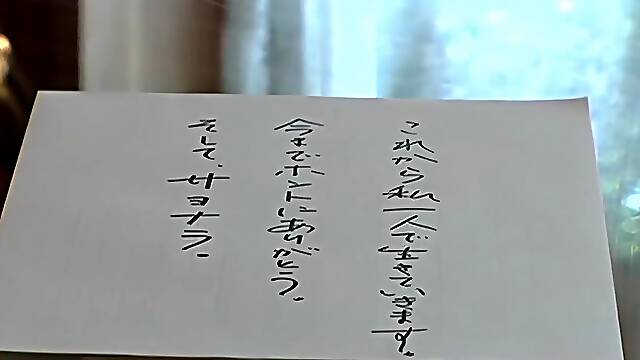 これから私一人で生きていきます。
今までホントにありがとう。
そして、サヨナラ。